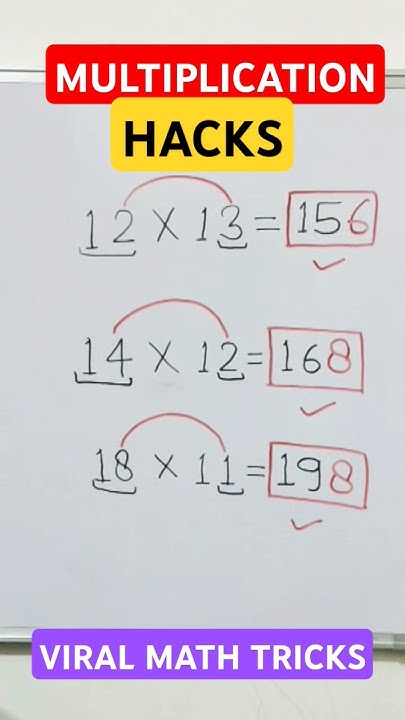 MULTIPLICATION
HACKS
12 X 13 = 156
14 X 12 = 168
18 X 11 = 198
VIRAL MATH TRICKS